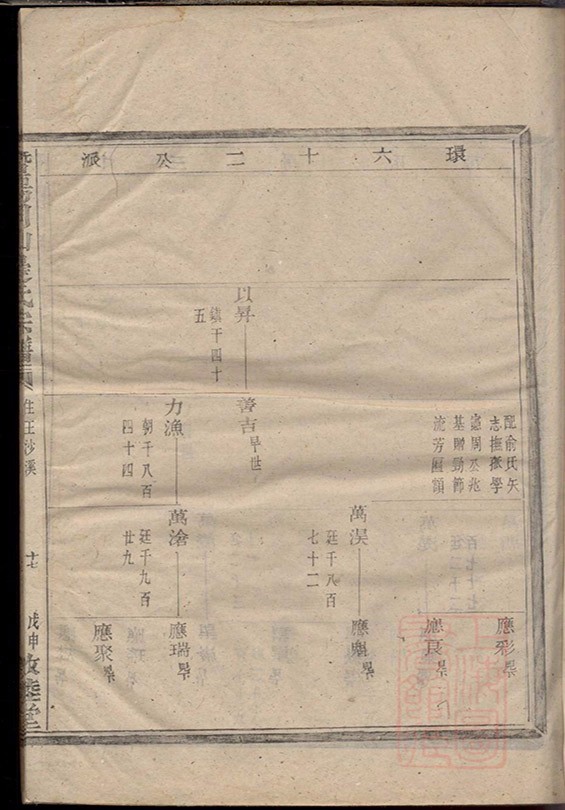 環六十二公派
配俞氏矢
志撫孤學
憲周公兆
基贈勁節
流芳匾額
應彩
應良
萬淏
廷千八百
七十二
應興
以昇
鎮千四十
五
善吉早世
力漁
朝千八百
四十四
萬滄
廷千九百
廿九
應瑞
應聚
住王沙溪
十七
戊申
敦睦堂